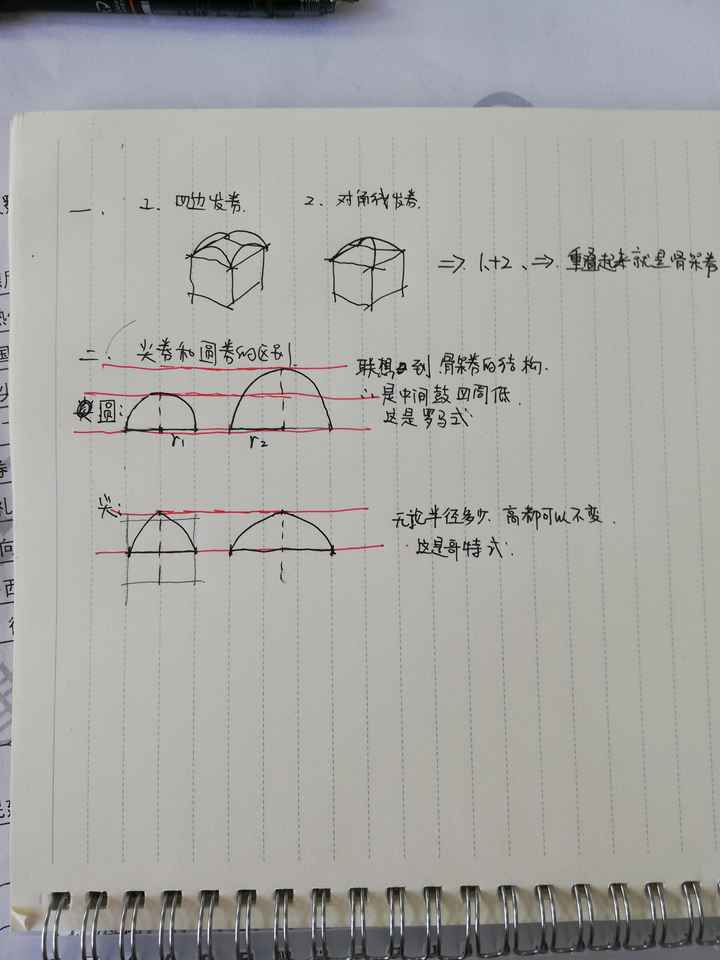 一、 1. 四边发券. 2. 对角线发券.
⇒ 1+2、⇒ 重叠起来就是骨架券
二、 尖券和圆券的区别.
联想到 骨架券的结构.
∴ 是中间鼓四周低.
这是罗马式.
圆:
r₁ r₂
尖:
无论半径多少. 高都可以不变.
· 这是哥特式.